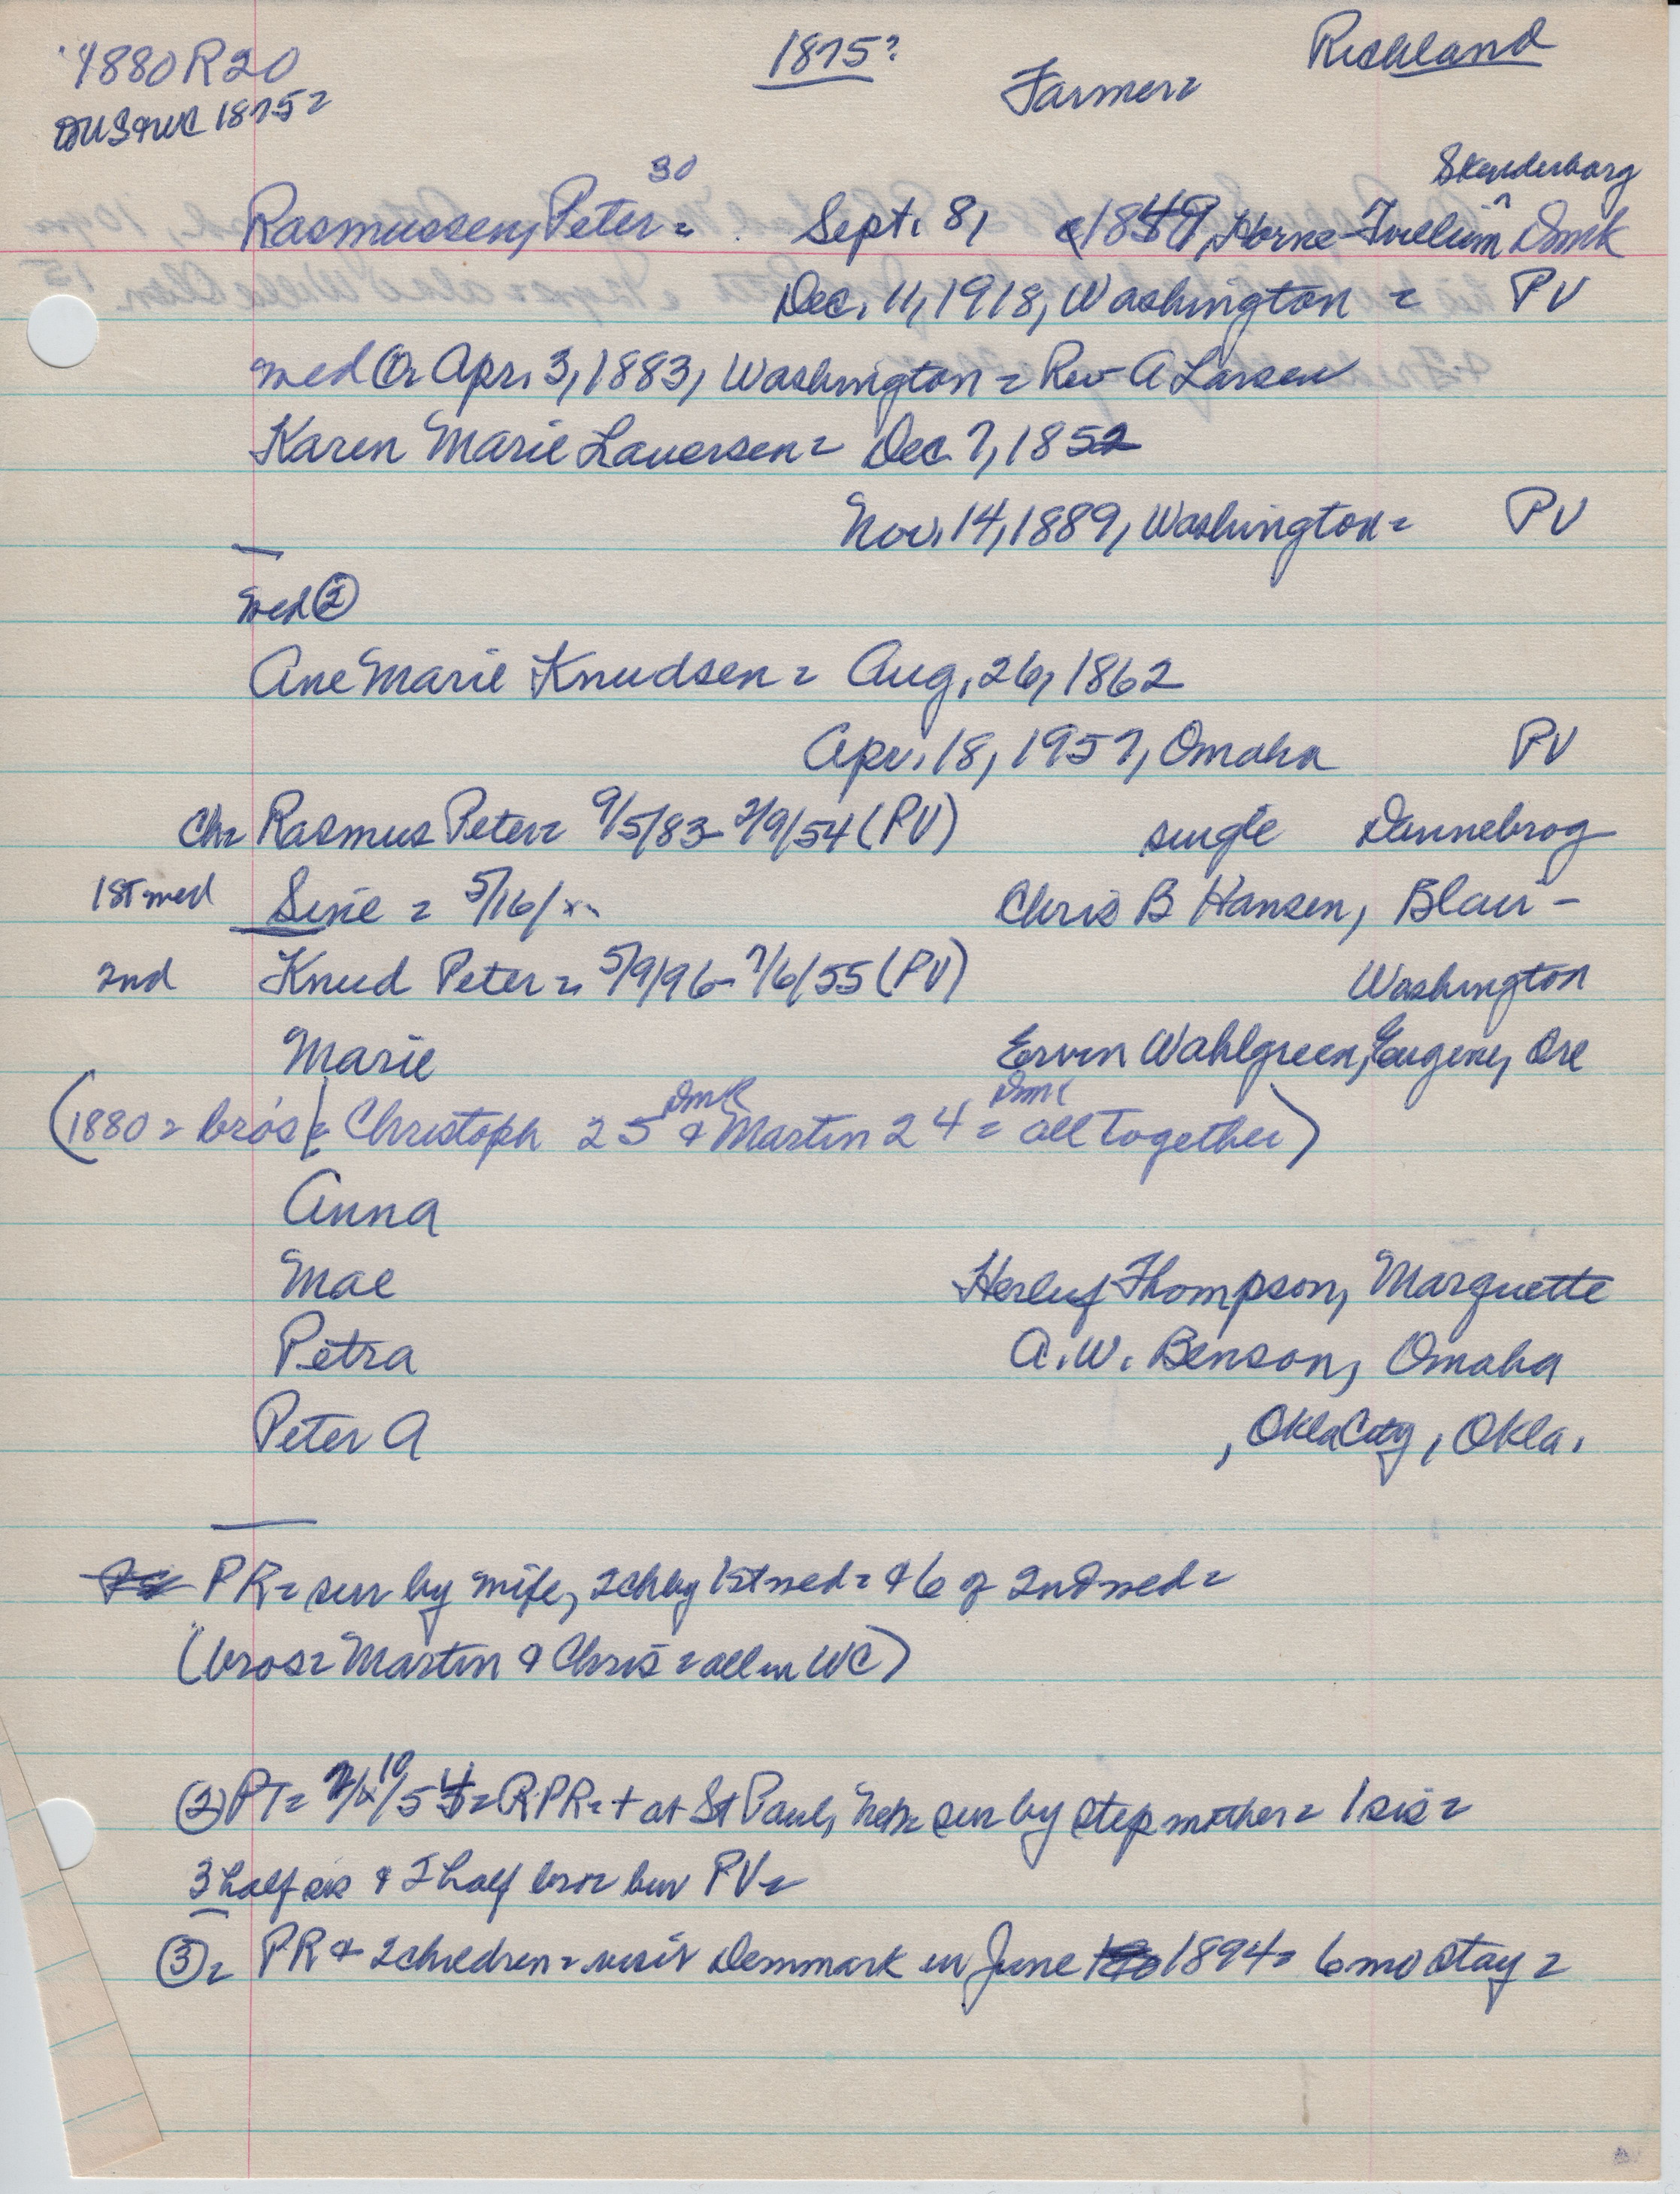 1880 R20
1875?
Richland
Farmer=
to US & WC 1875=
30
Skanderborg
Rasmussen, Peter = Sept. 8, 1849, Horne-Tvellum Dmk
Dec. 11, 1918, Washington = PV
med ① Apr. 3, 1883, Washington = Rev A Larsen
Karen Marie Lauersen = Dec. 7, 1852
Nov. 14, 1889, Washington = PV
med ②
Ane Marie Knudsen = Aug. 26, 1862
Apr. 18, 1957, Omaha PV
Ch= Rasmus Peter = 9/5/83- 2/9/54 (PV) single Dannebrog
1st med Sine = 5/16/x Chris B Hansen, Blair -
2nd Knud Peter = 5/9/96- 7/6/55 (PV) Washington
Marie Ervin Wahlgreen, Eugene, Ore
Dmk Dmk
(1880 = bros = Christoph 25 & Martin 24 = all together)
Anna
Mae Herluf Thompson, Marquette
Petra A. W. Benson, Omaha
Peter A , Okla City, Okla.
PR = sur by wife, 2 ch by 1st med = & 6 of 2nd med =
(bros = Martin & Chris = all in WC)
② PT = 2/10/54 = RPR = + at St Paul, Neb = sur by step mother = 1 sis =
3 half sis & 2 half bro = bur PV =
③ = PR & 2 children = visit Denmark in June 1894 = 6 mo stay =